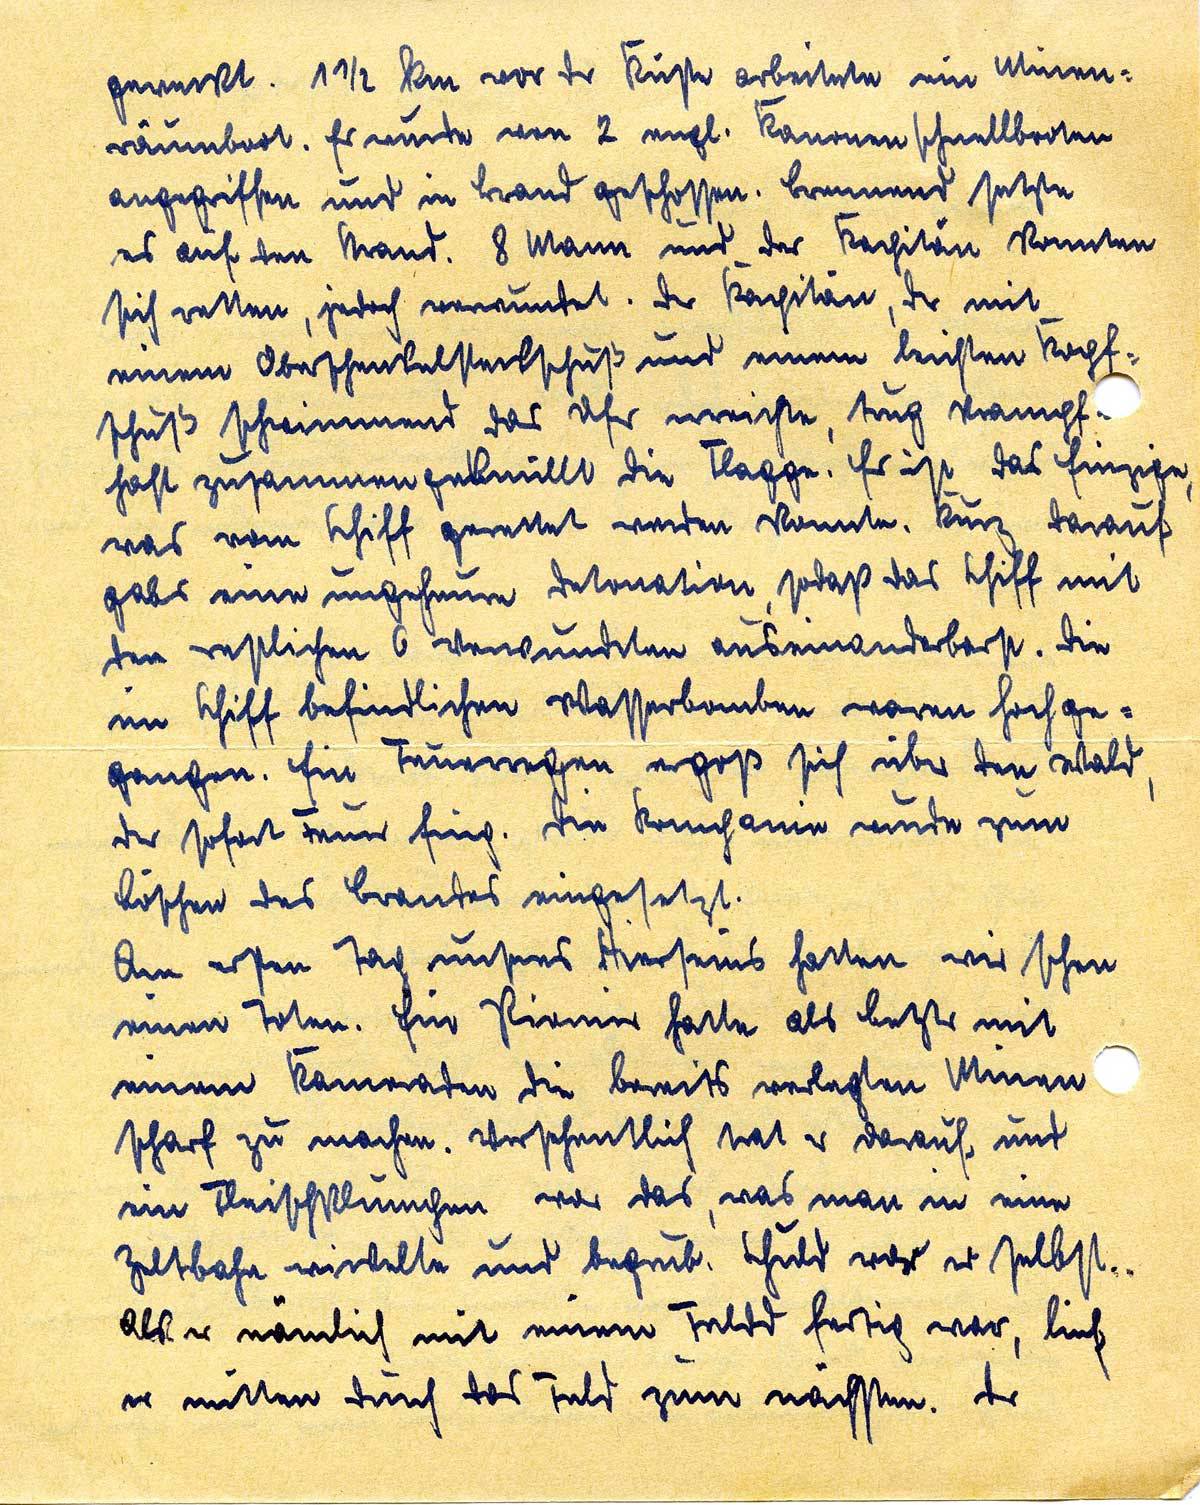 geweckt. 1 1/2 km vor der Küste arbeitete ein Minen=
räumboot. Er wurde von 2 engl. Kanonenschnellbooten
angegriffen und in Brand geschossen. Brennend setzte
es auf den Strand. 8 Mann und der Kapitän konnten
sich retten, jedoch verwundet. Der Kapitän, der mit
einem Oberschenkelsteckschuß und einem leichten Kopf=
schuß schwimmend das Ufer erreichte, trug krampf=
haft zusammengeknüllt die Flagge. Er ist das Einzige,
was vom Schiff gerettet werden konnte. Kurz darauf
gabs eine ungeheure Detonation, sodaß das Schiff mit
den restlichen 6 Verwundeten auseinanderbarst. Die
im Schiff befindlichen Wasserbomben waren hochge=
gangen. Ein Feuerregen ergoß sich über den Wald,
der sofort Feuer fing. Die Kompanie wurde zum
Löschen des Brandes eingesetzt.
Am ersten Tag unseres Hierseins hatten wir schon
einen Toten. Ein Pionier hatte als letzter mit
einem Kameraden die bereits verlegten Minen
scharf zu machen. Versehentlich trat er darauf und
ein Fleischklumpen war das, was man in eine
Zeltbahn wickelte und begrub. Schuld war er selbst..
Als er nämlich mit einem Feld fertig war, lief
er mitten durch das Feld zum nächsten. Der